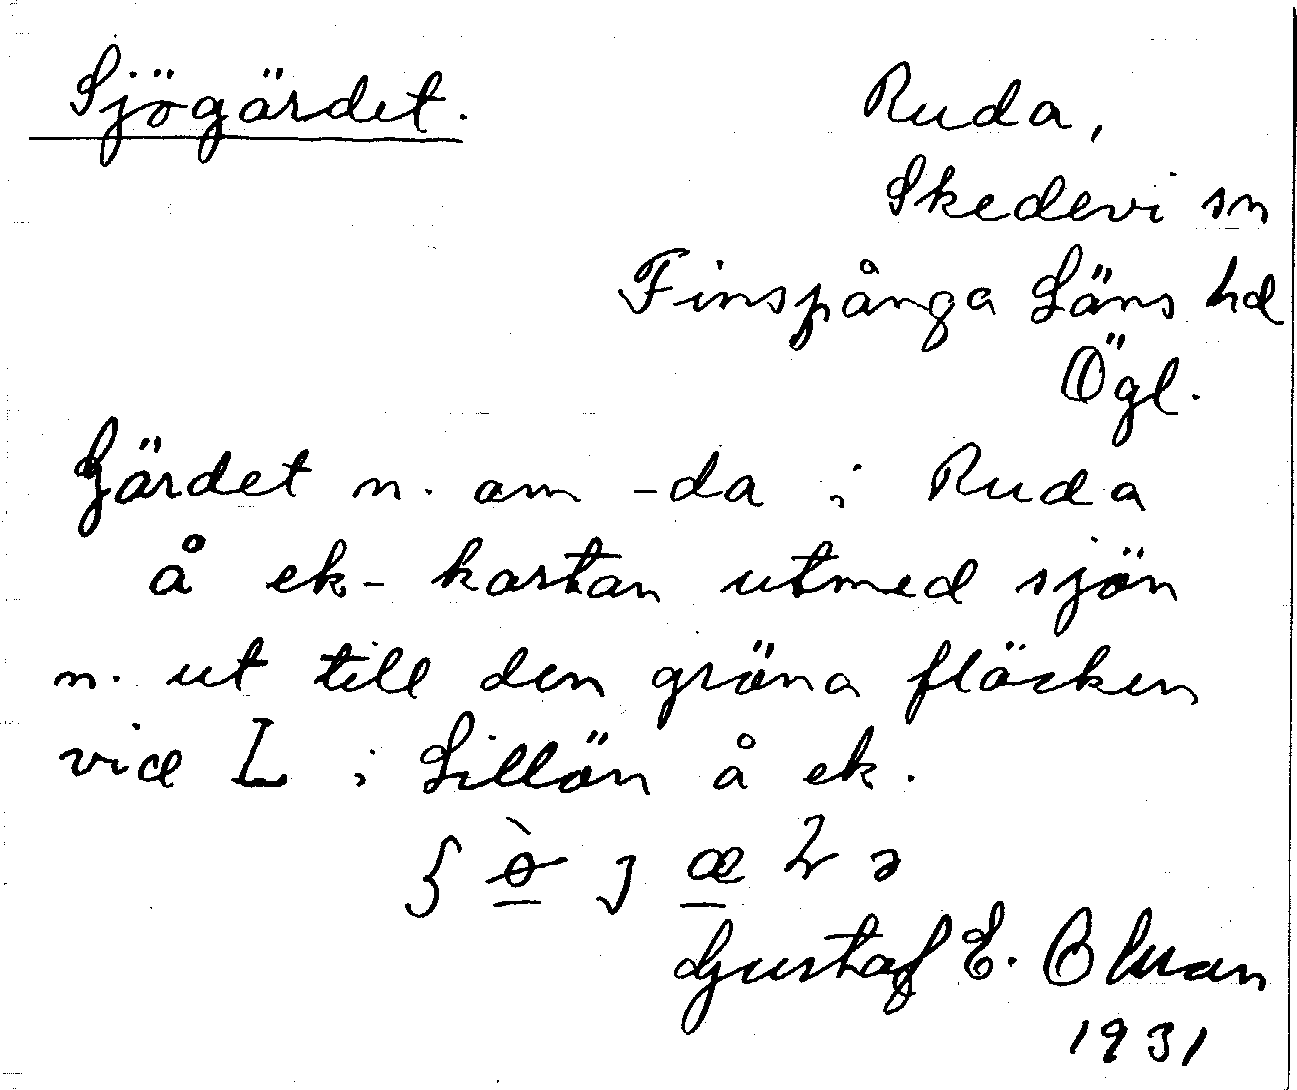 Sjögärdet.
Ruda,
Skedevi sn
Finspånga Läns hd
Ögl.
Gärdet n. om -da i Ruda
å ek-kartan utmed sjön
n. ut till den gröna fläcken
vid L i Lillön å ek.
Gustaf E. Olman
1931